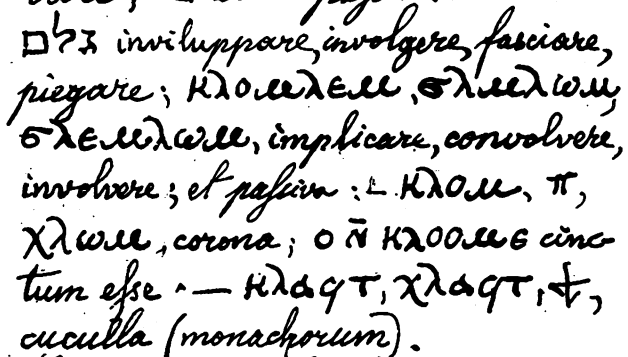 גלם inviluppare, involgere, fasciare,
piegare; ⲕⲗⲟⲙⲗⲉⲙ, ϭⲗⲙⲗⲱⲙ,
ϭⲗⲉⲙⲗⲱⲙ, implicare, convolvere,
involvere; et paſsiva: ∟ ⲕⲗⲟⲙ, ⲡ,
ⲭⲗⲱⲙ, corona; ⲟ ⲛ̄ ⲕⲗⲟⲟⲙⲉ cinc-
tum eſse ·— ⲕⲗⲁϥⲧ, ⲭⲗⲁϥⲧ, ϯ,
cuculla (monachorum).